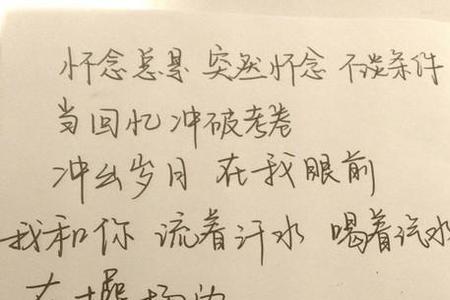 怀念总是 突然怀念 不谈条件
当回忆冲破考卷
冲出岁月 在我眼前
我和你 流着汗水 喝着汽水
在操场边